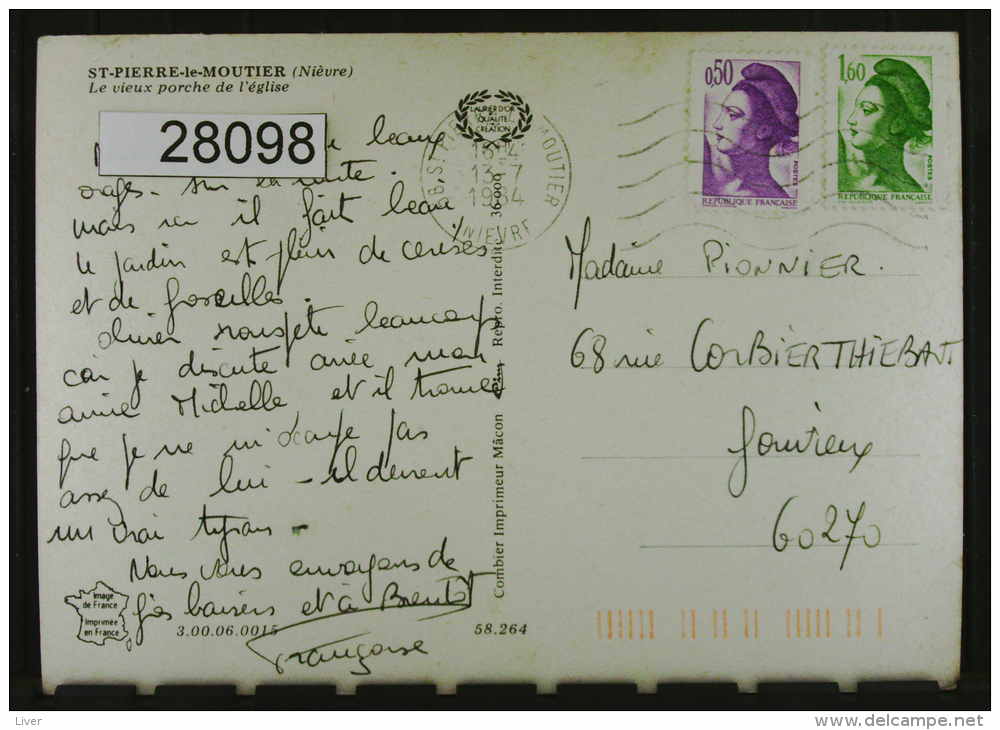 ST-PIERRE-le-MOUTIER (Nièvre)
Le vieux porche de l'église
28098
beaux
orages - sur la route.
mais ici il fait beau
le jardin est plein de cerises
et de groseilles.
Olivier rouspète beaucoup
car je discute avec mon
amie Michelle et il trouve
que je ne m'occupe pas
assez de lui - il devient
un vrai tyran -
Nous vous envoyons de
gros baisers et à Bientôt
Françoise
Image
de France
Imprimée
en France
3.00.06.0015
58.264
Combier Imprimeur Mâcon
Repro. Interdite
36.000
LAURIER D'OR
DE
QUALITÉ
CRÉATION
MOUTIER
13-7
1984
NIEVRE
0,50
POSTES
REPUBLIQUE FRANÇAISE
1,60
POSTES
REPUBLIQUE FRANÇAISE
Madame PIONNIER.
68 rue CORBIER THIEBAUT
Gouvieux
60270
Liver
delcampe.net